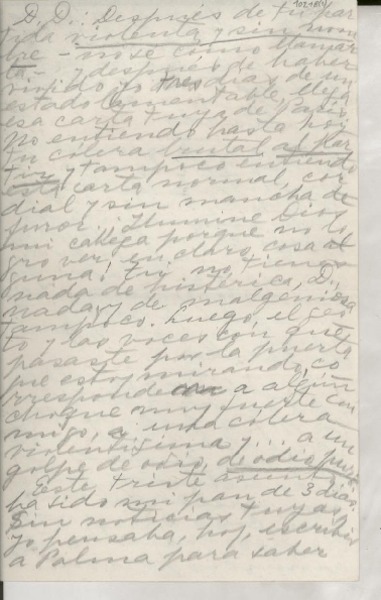 1021841
D. D.: Después de tu par
tida violenta y sin nom
bre - no sé cómo llamar
la - y después de haber
vivido yo tres días de un
estado lamentable, llega
esa carta tuya de París.
No entiendo hasta hoy
tu cólera brutal al par
tir y tampoco entiendo
esta carta normal, cor
dial y sin mancha de
furor. Ilumine Dios
mi cabeza porque no lo
gro ver en claro cosa al
guna! Tú no tienes
nada de histérica, D.,
nada, y de malgeniosa
tampoco. Luego, el ges
to y las voces con que
pasaste por la puerta
que estoy mirando, co
rresponden a algún
choque muy fuerte con
migo, a una cólera
violentísima y... a un
golpe de odio, de odio puro
Este triste asunto
ha sido mi pan de 3 días.
Sin noticias tuyas,
yo pensaba, hoy, escribir
a Palma para saber